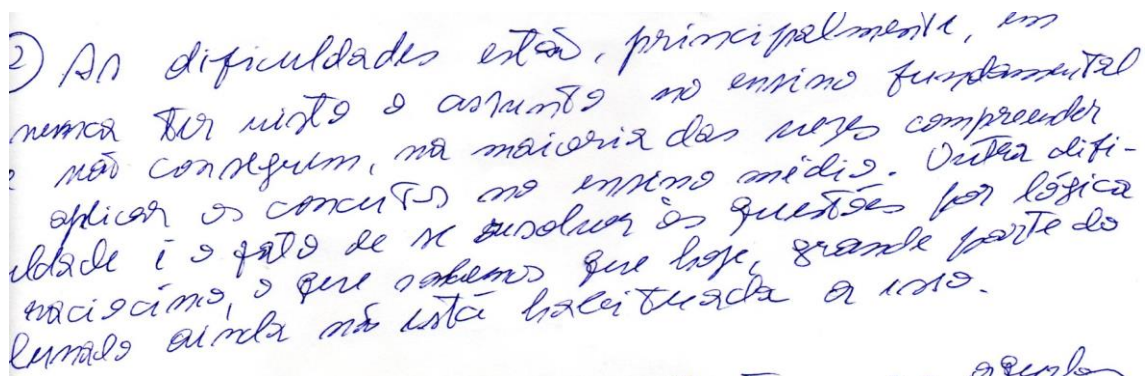 2) As dificuldades estão, principalmente, em
nunca ter visto o assunto no ensino fundamental
e não conseguem, na maioria das vezes compreender
aplicar os conceitos no ensino médio. Outra difi-
uldade é o fato de se resolver às questões por lógica
raciocínio, o que sabemos que hoje, grande parte do
lunado ainda não está habituada a isso.